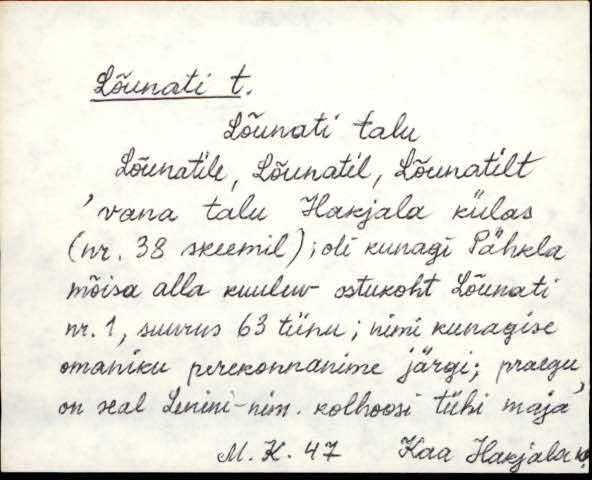 Lõunati t.
Lõunati talu
Lõunatile, Lõunatil, Lõunatilt
'vana talu Hakjala külas
(nr. 38 skeemil); oli kunagi Pähkla
mõisa alla kuuluv ostukoht Lõunati
nr. 1, suurus 63 tiinu; nimi kunagise
omaniku perekonnanime järgi; praegu
on seal Lenini-nim. kolhoosi tühi maja'
M. K. 47 Kaa Hakjala k.